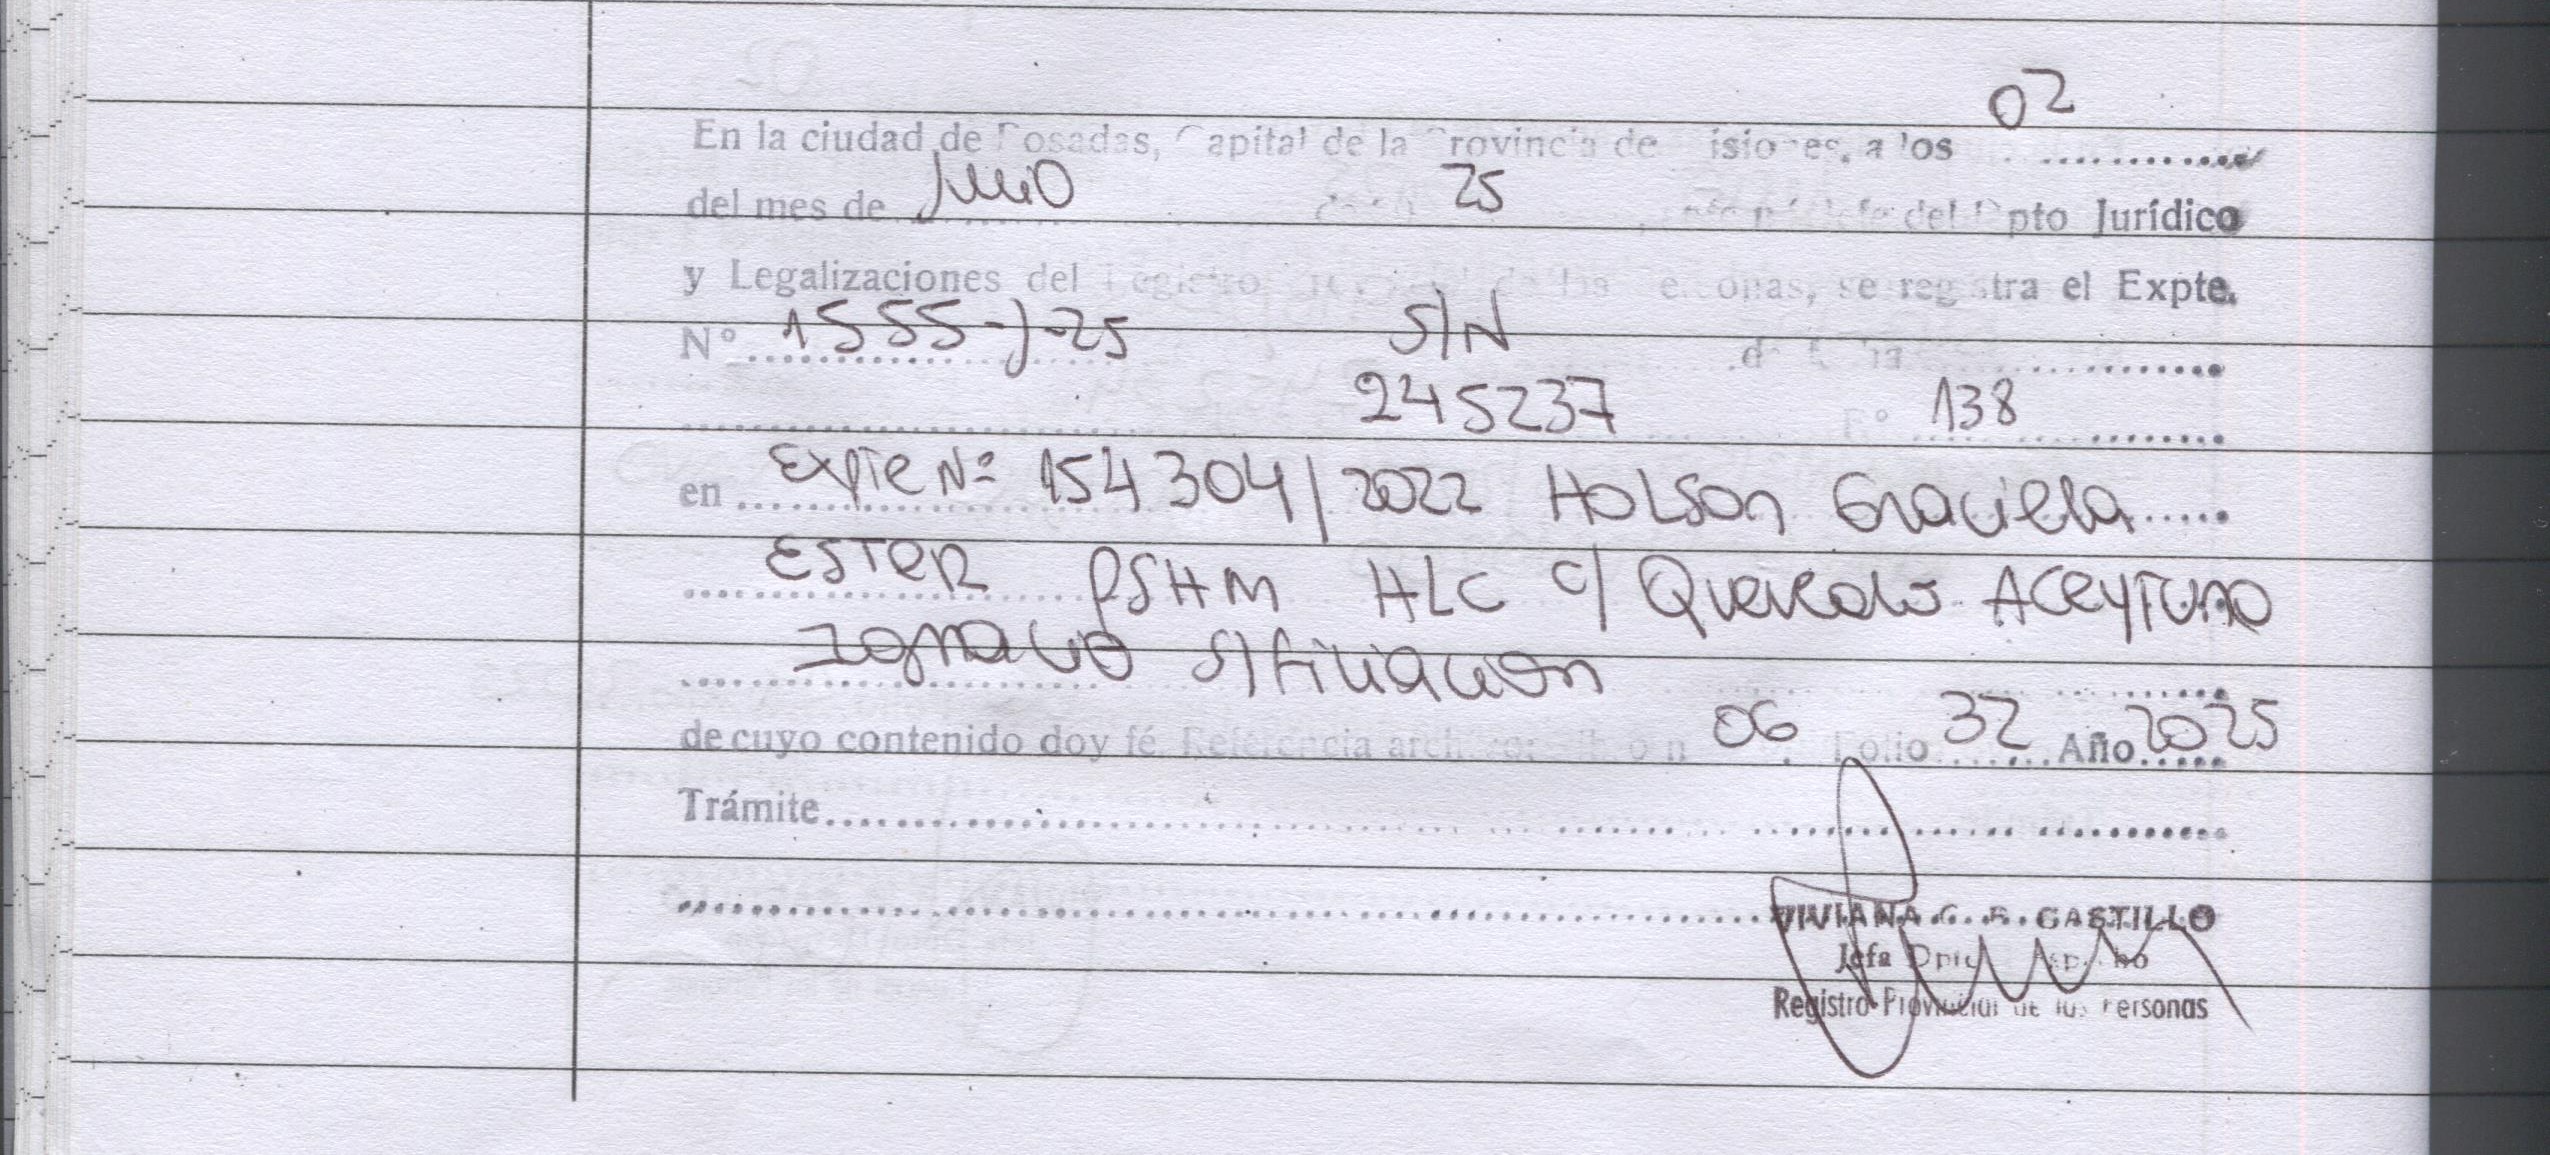 02
En la ciudad de Posadas, Capital de la Provincia de Misiones, a los
del mes de 25 del Dpto Jurídico
y Legalizaciones del Registro Provincial de las Personas, se registra el Expte.
Nº 1555-J-25 S/N de fecha
245237 Fº 138
en Expte Nº 154304/2022 HOLSON Graciela
ESTER PSHM HLC c/ Quevedo ACEYTUNO
Ignacio S/filiacion
de cuyo contenido doy fé. Referencia archivo: libro n 06. Folio 32 Año 2025
Trámite
VIVIANA G. CASTILLO
Jefa Dpto Despacho
Registro Provincial de las Personas